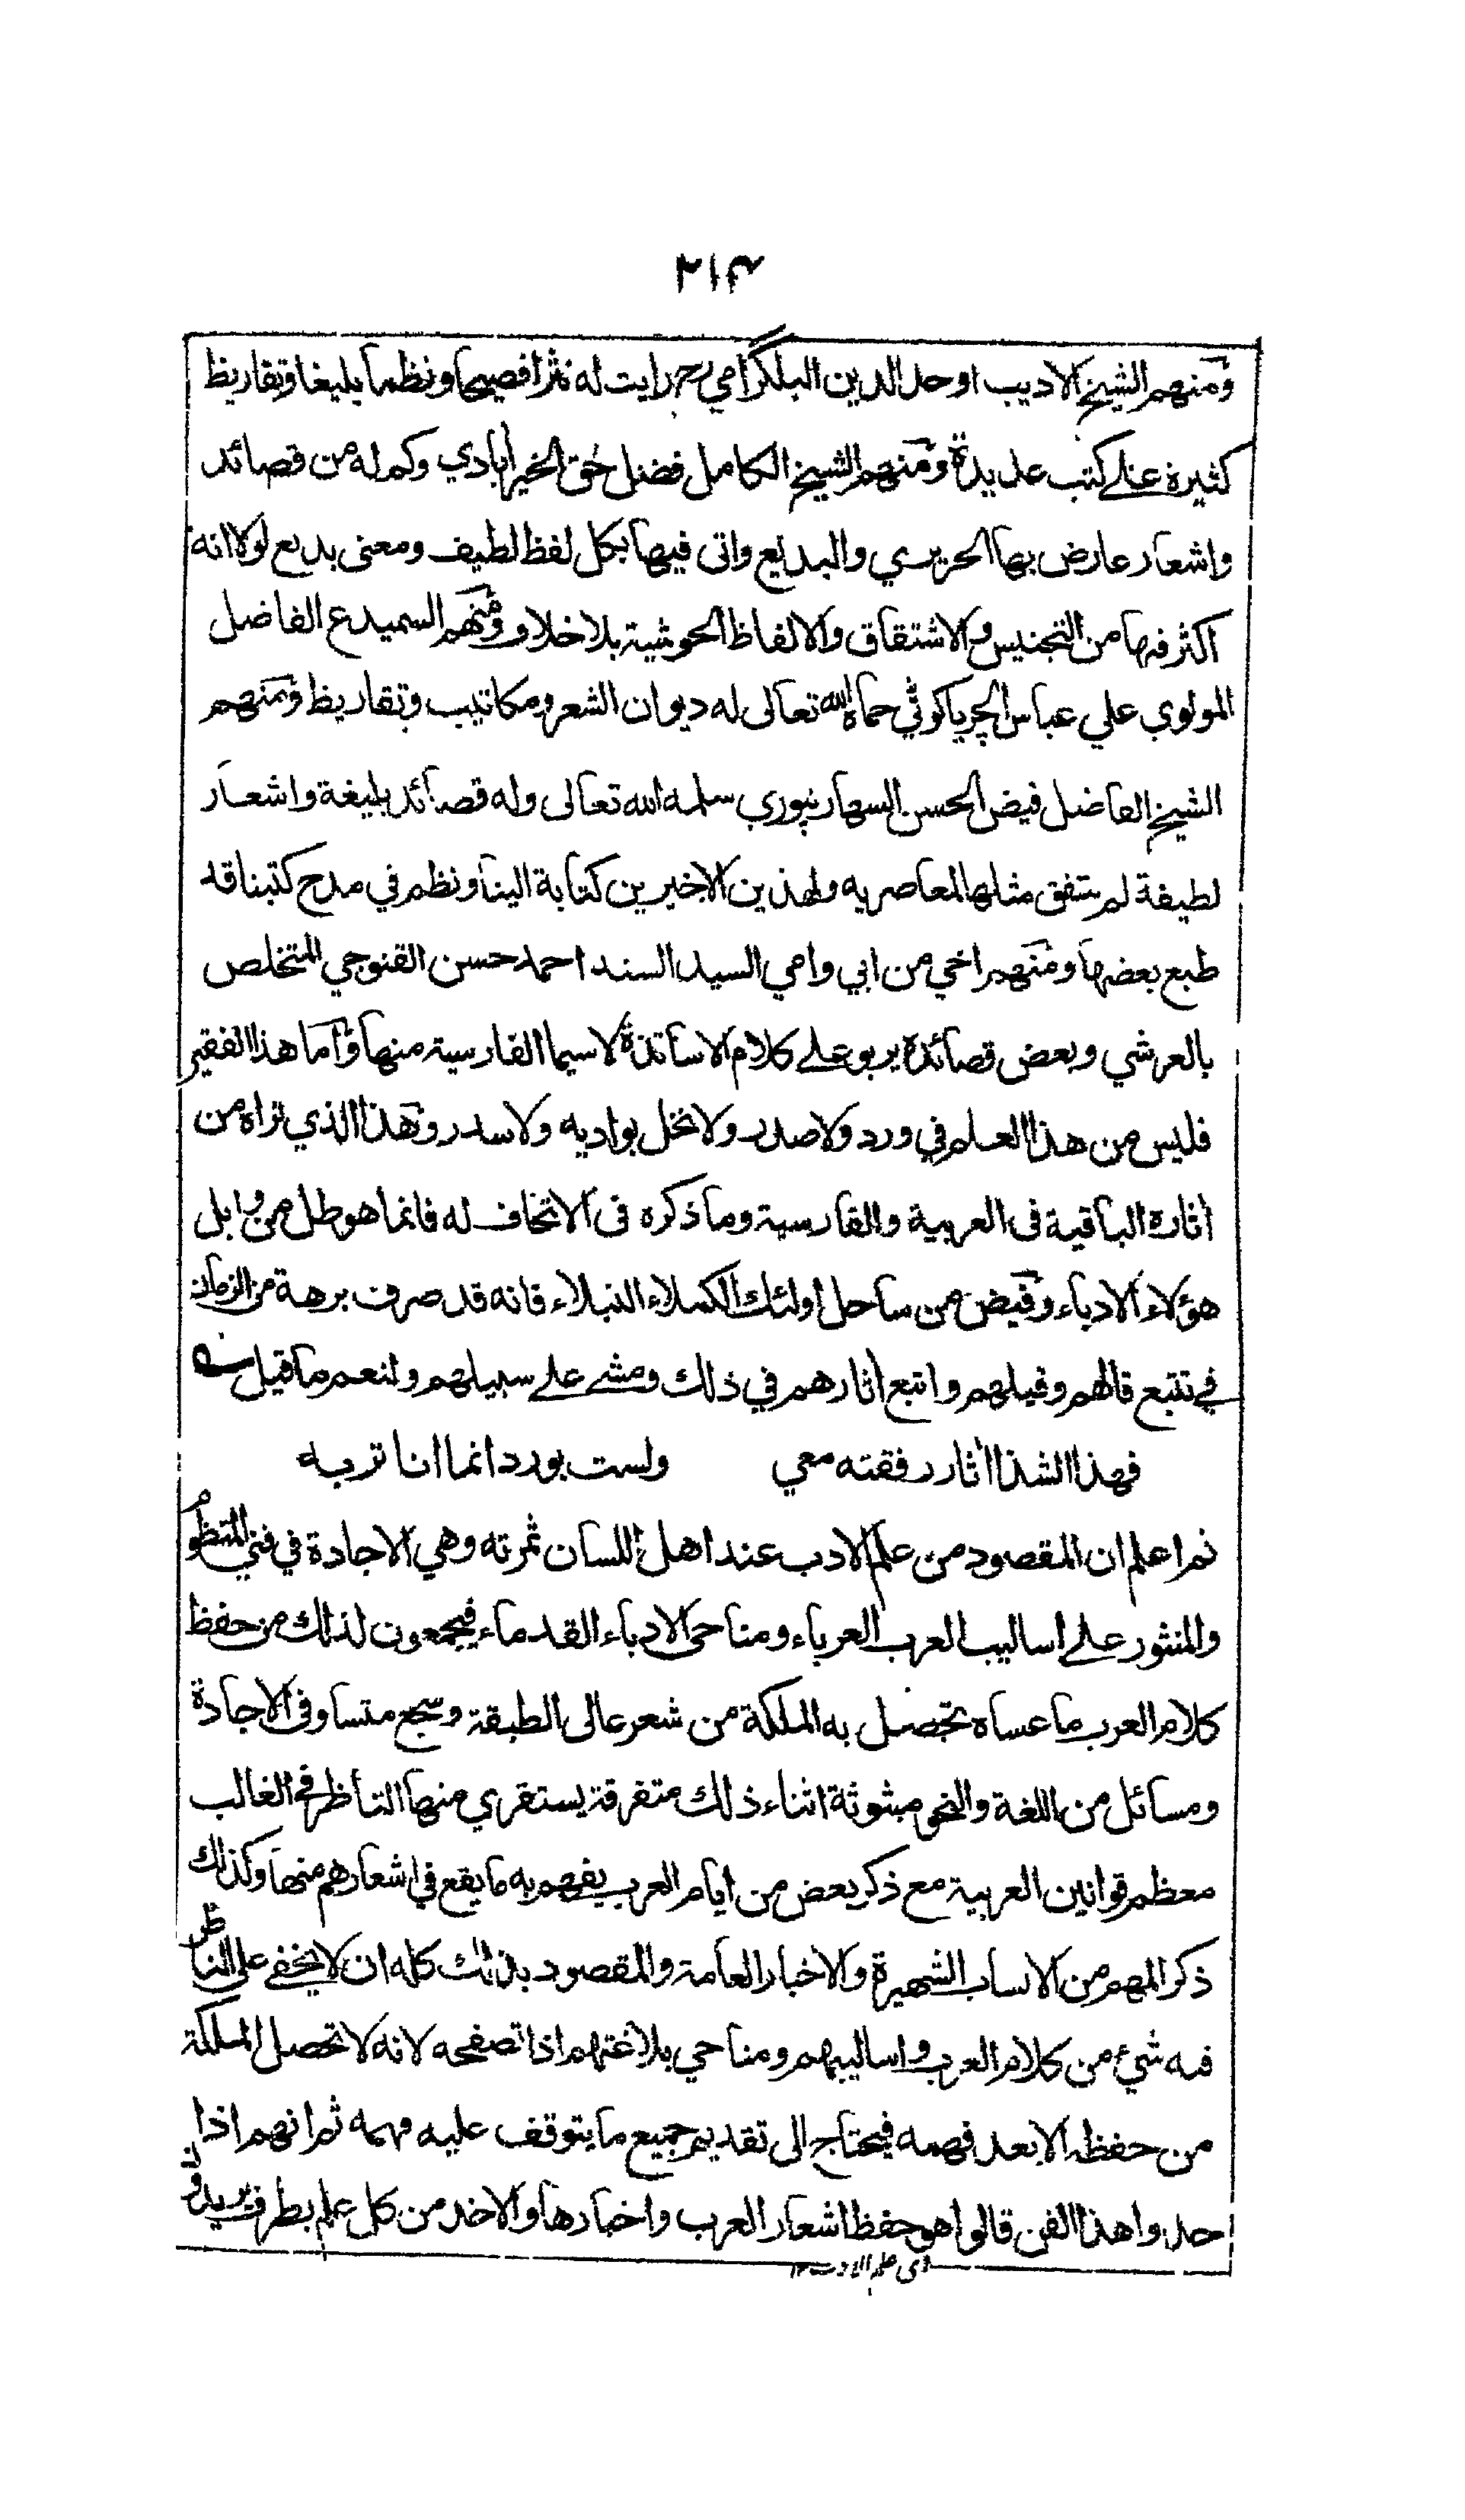 ٢١٤
ومنهم الشيخ الاديب اوحد الدين البلگرامي رح رايت له نثرا فصيحا ونظما بليغا وتقاريظ
كثيرة على كتب عديدة ومنهم الشيخ الكامل فضل حق الخيرابادي وكم له من قصائد
واشعار عارض بها الحريري والبديع واتى فيها بكل لفظ لطيف ومعنى بديع لولا انه
اكثر فيها من التجنيس والاشتقاق والالفاظ الحوشية بلا خلاو ومنهم السميدع الفاضل
المولوي علي عباس الچرياكوٹي حماه الله تعالى له ديوان الشعر ومكاتيب وتقاريظ ومنهم
الشيخ الفاضل فيض الحسن السهارنپوري سلمه الله تعالى وله قصائد بليغة واشعار
لطيفة لم يتفق مثلها لمعاصريه ولهذين الاخيرين كتابة الينا ونظم في مدح كتبنا قد
طبع بعضها ومنهم اخي من ابي وامي السيد السند احمد حسن القنوجي المتخلص
بالعرشي وبعض قصائده يربو على كلام الاساتذة لاسيما الفارسية منها واما هذا الفقير
فليس من هذا العلم في ورد ولا صدر ولا نخل بواديه ولا سدر وهذا الذي تراه من
اثاره الباقية في العربية والفارسية وما ذكره في الاتحاف له فانما هو طل من وابل
هؤلاء الادباء وفيض من ساحل اولئك الكملاء النبلاء فانه قد صرف برهة من الزمان
في تتبع قالهم وقيلهم واتبع اثارهم في ذلك ومشى على سبيلهم ولنعم ما قيل ؎
فهذا الشذا اثار رفقته معي ولست بورد انما انا تربه
ثم اعلم ان المقصود من علم الادب عند اهل اللسان ثمرته وهي الاجادة في فني المنظوم
والمنثور على اساليب العرب العرباء ومناحي الادباء القدماء فيجمعون لذلك من حفظ
كلام العرب ما عساه تحصل به الملكة من شعر عالى الطبقة وسجع متساو في الاجادة
ومسائل من اللغة والنحو مبثوثة اثناء ذلك متفرقة يستقري منها الناظر في الغالب
معظم قوانين العربية مع ذكر بعض من ايام العرب يفهم به ما يقع في اشعارهم منها وكذلك
ذكر المهم من الانساب الشهيرة والاخبار العامة والمقصود بذلك كله ان لا يخفى على الناظر
فيه شيء من كلام العرب واساليبهم ومناحي بلاغتهم اذا تصفحه لانه لا تحصل الملكة
من حفظه الا بعد فهمه فيحتاج الى تقديم جميع ما يتوقف عليه فهمه ثم انهم اذا
حدوا هذا الفن قالوا هو حفظ اشعار العرب واخبارها والاخذ من كل علم بطرف يريدون
اى علم الادب ١٢